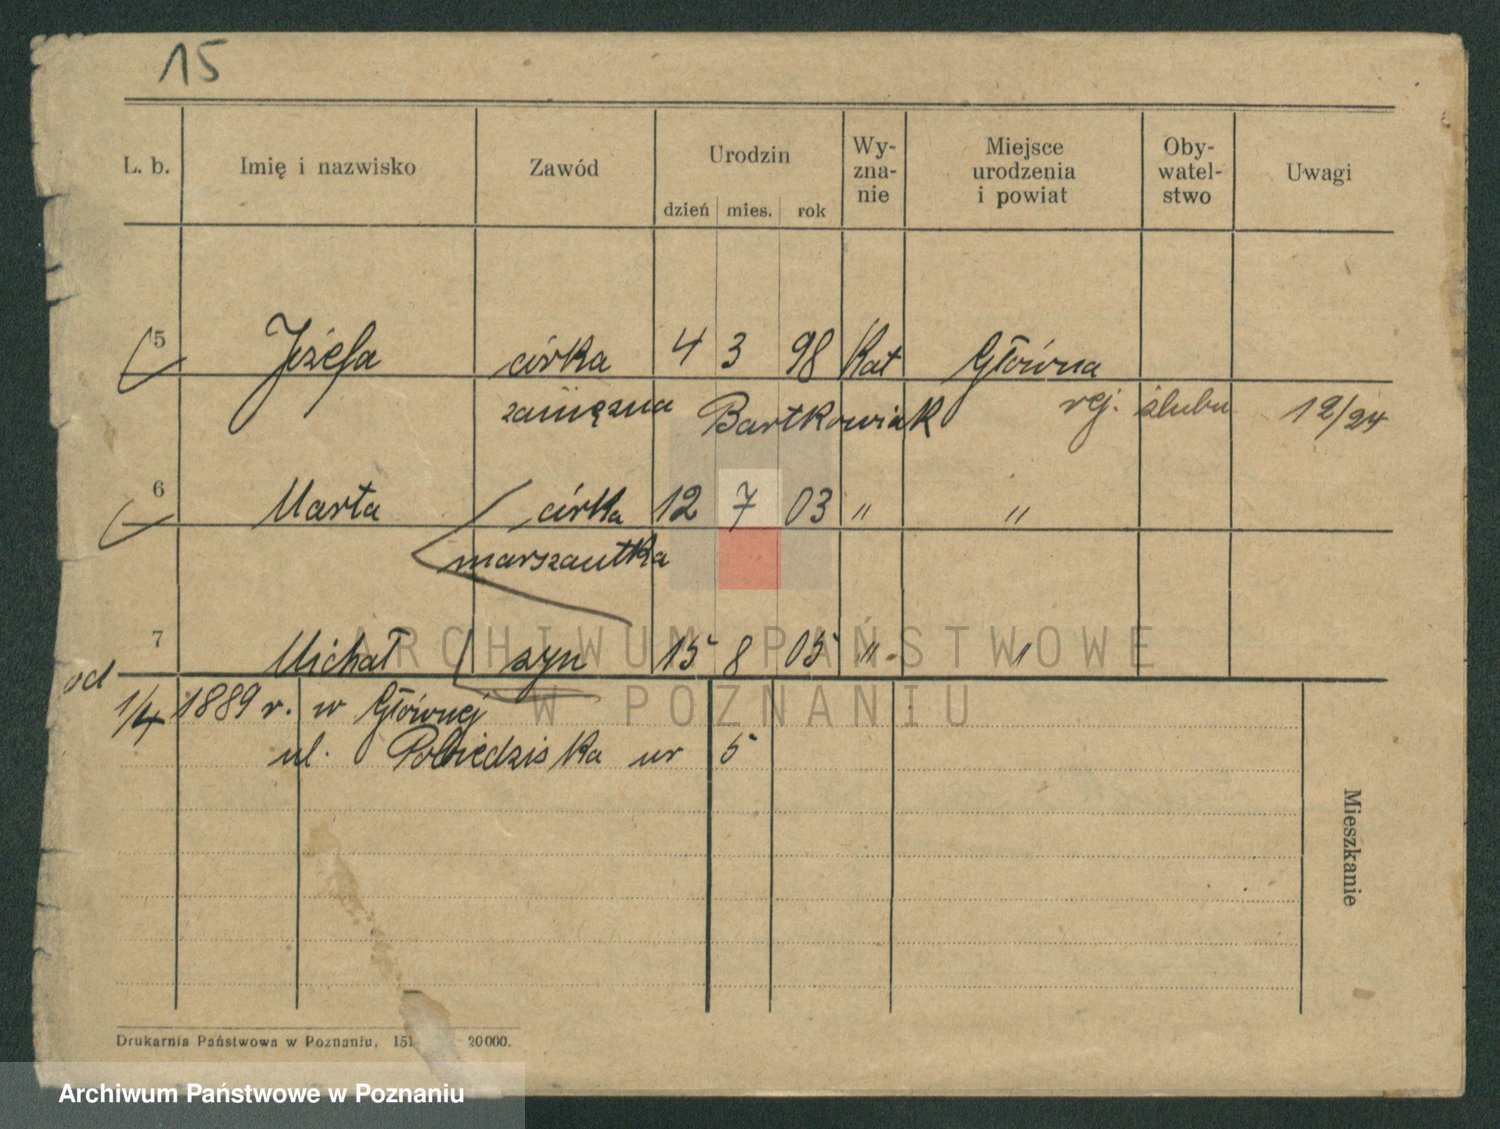 15
L. b. Imię i nazwisko Zawód Urodzin dzień mies. rok Wyznanie Miejsce urodzenia i powiat Obywatelstwo Uwagi
5 Józefa córka 4 3 98 Kat Główna
zamężna Bartkowiak rej. ślubu 12/24
6 Marta córka 12 7 03 " "
7 Michał syn 15 8 05 " "
od 1/4 1889 r. w Głównej
ul. Pobiedziska nr 5
Mieszkanie
Drukarnia Państwowa w Poznaniu, 151 20000.
ARCHIWUM PAŃSTWOWE
W POZNANIU
Archiwum Państwowe w Poznaniu